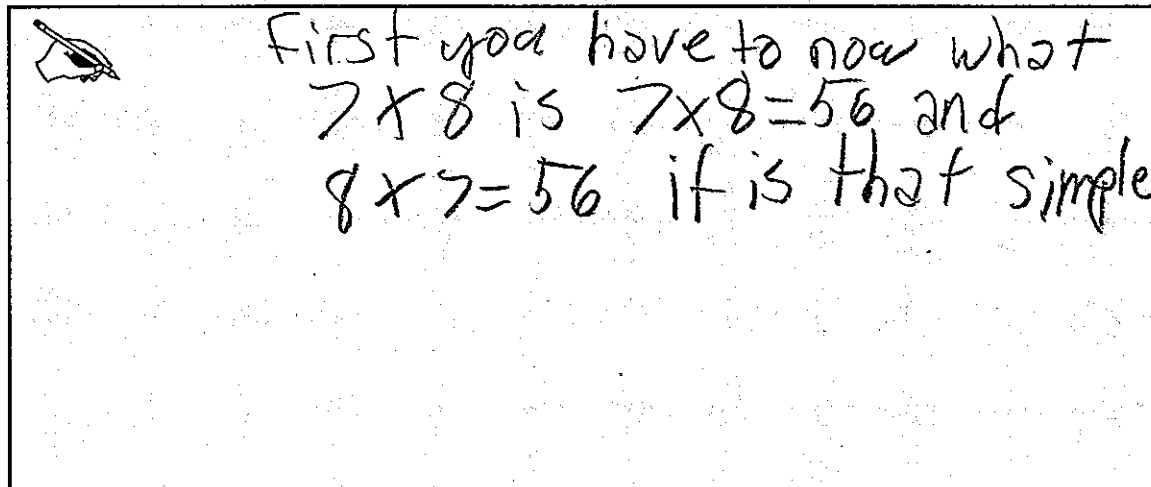 First you have to now what
7 x 8 is 7x8=56 and
8 x 7=56 it is that simple